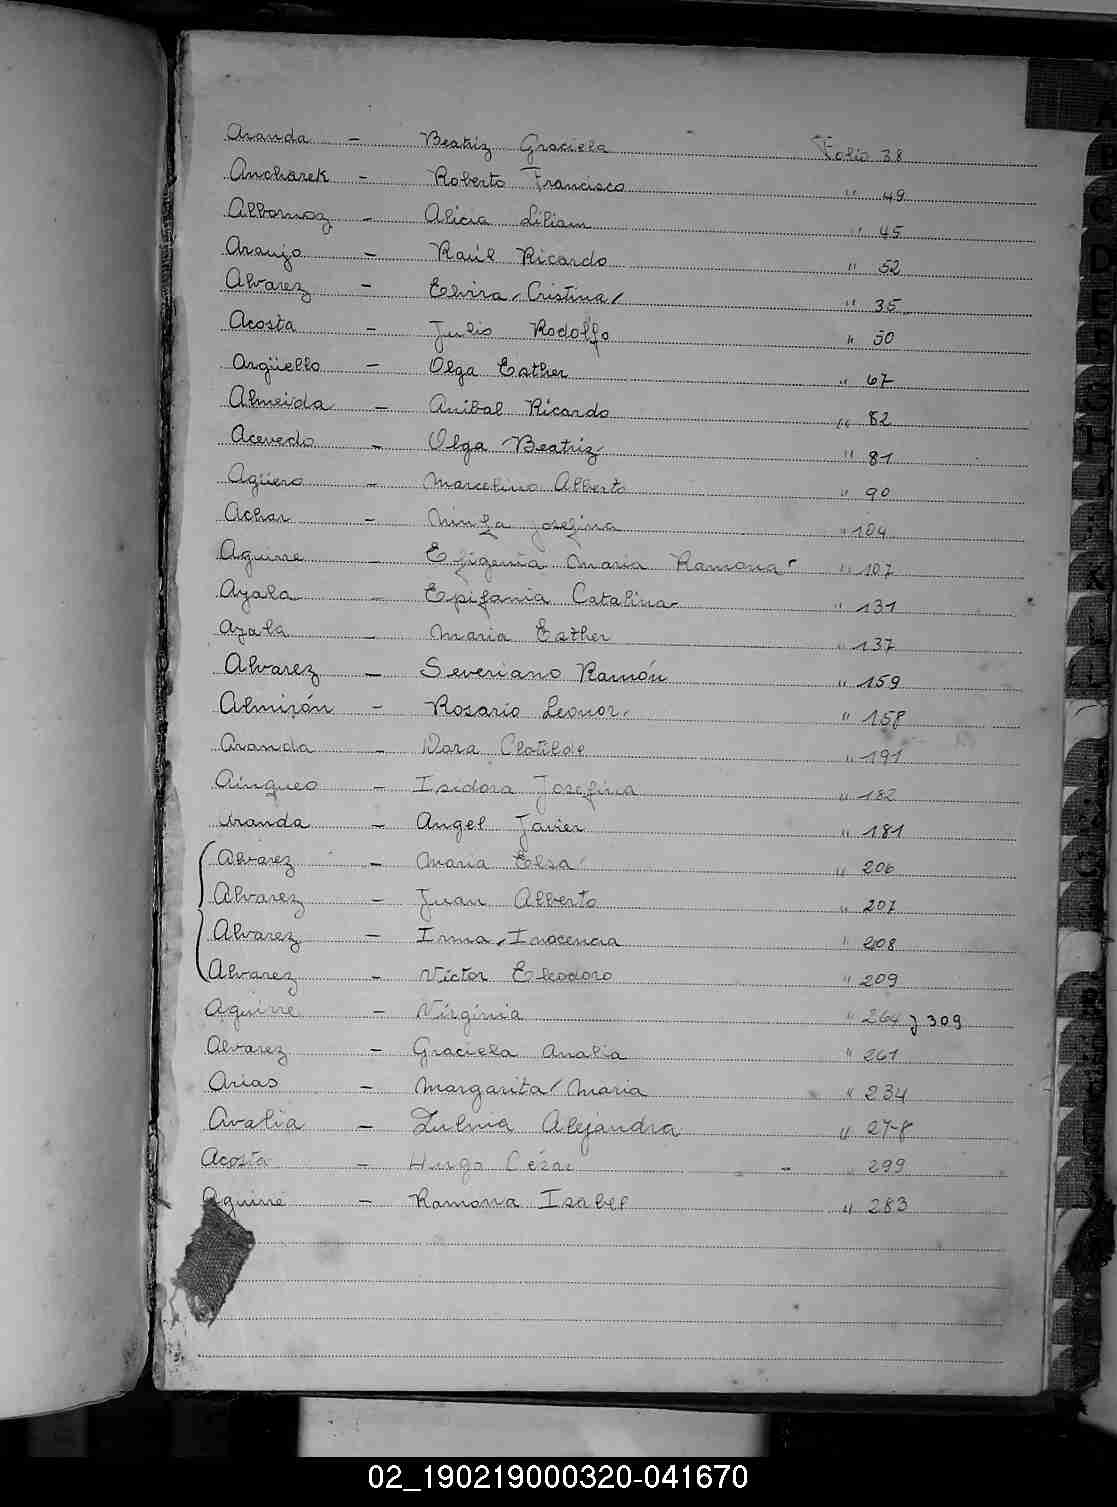 Aranda - Beatriz Graciela Folio 38
Ancharek - Roberto Francisco " 49
Albornoz - Alicia Liliam " 45
Araujo - Raúl Ricardo " 52
Alvarez - Elvira Cristina " 35
Acosta - Julio Rodolfo " 50
Argüello - Olga Esther " 67
Almeida - Anibal Ricardo " 82
Acevedo - Olga Beatriz " 81
Agüero - Marcelino Alberto " 90
Achar - Ninfa Josefina " 104
Aguirre - Efigenia Maria Ramona " 107
Ayala - Epifania Catalina " 131
Ayala - Maria Esther " 137
Alvarez - Severiano Ramón " 159
Almirón - Rosario Leonor " 158
Aranda - Dora Clotilde " 191
Ainqueo - Isidora Josefina " 182
Aranda - Angel Javier " 181
Alvarez - Maria Elsa " 206
Alvarez - Juan Alberto " 207
Alvarez - Irma Inocencia " 208
Alvarez - Víctor Eleodoro " 209
Aguirre - Virginia " 264 y 309
Alvarez - Graciela Analia " 261
Arias - Margarita Maria " 234
Avalia - Zulmia Alejandra " 278
Acosta - Hugo Cézar " 299
Aguirre - Ramona Isabel " 283
02_190219000320-041670